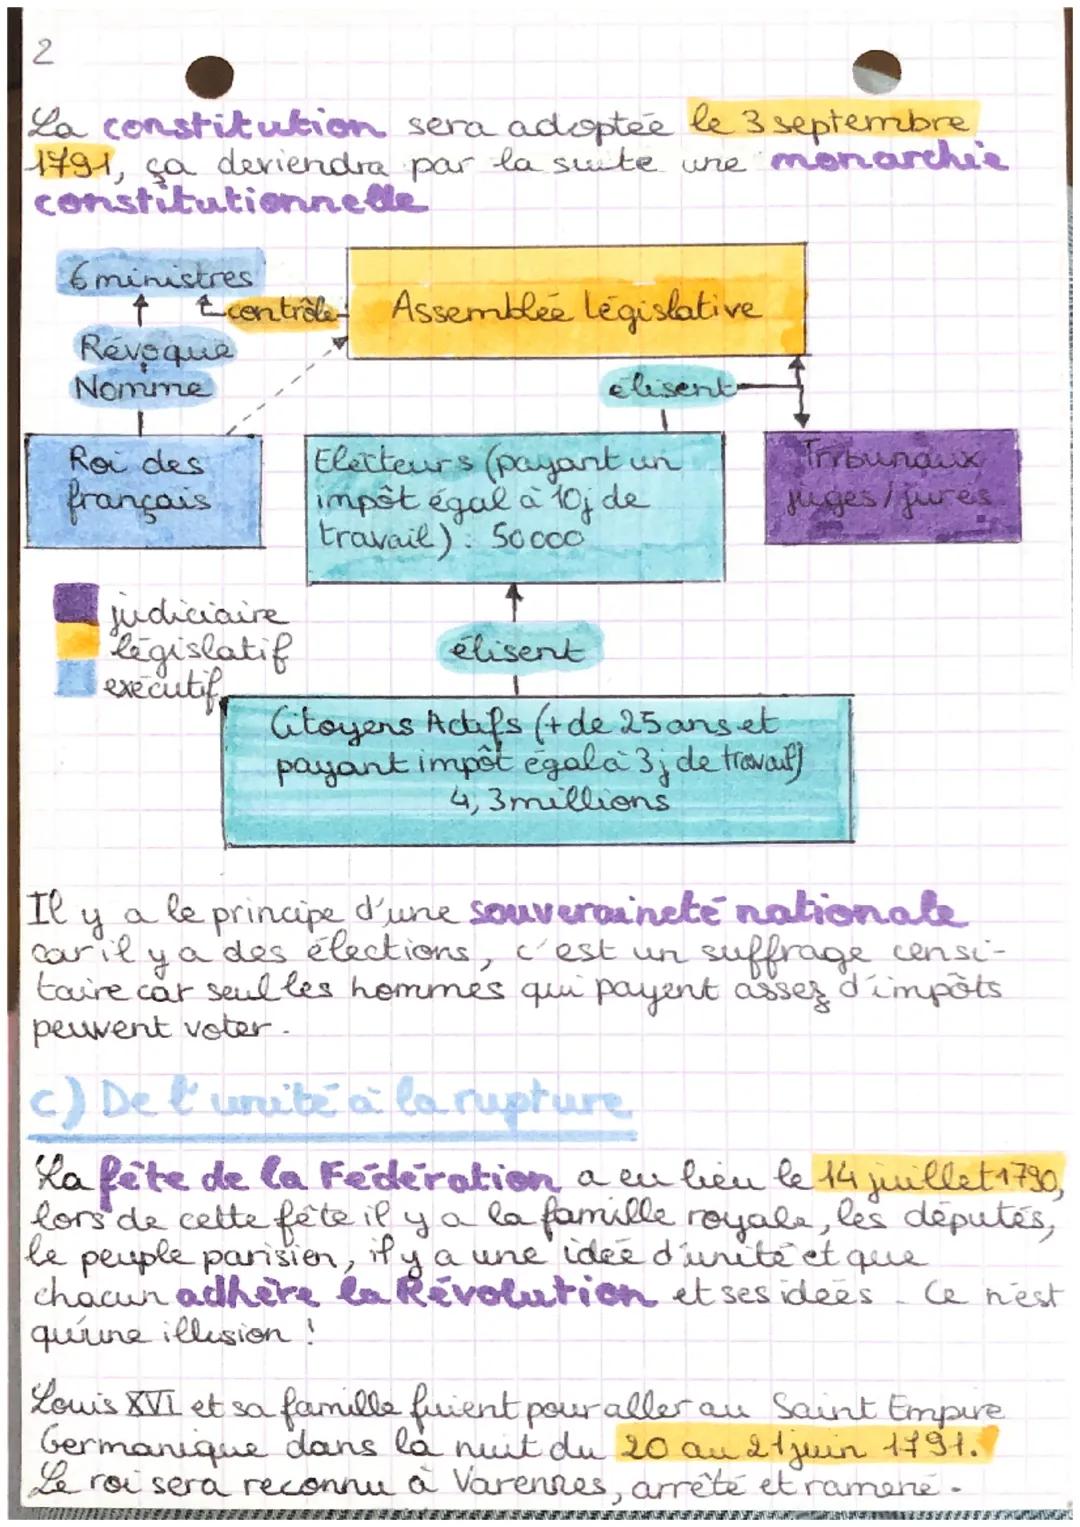 2
La constitution sera adoptée le 3 septembre
1791, ça deviendra par la suite une monarchie
constitutionnelle
6 ministres
contrôle
Assemblée législative
Révoque
Nomme
élisent
Roi des
français
Electeurs (payant un
impôt égal à 10j de
travail) : 50000
Tribunaux
juges/jurés
judiciaire
législatif
exécutif
élisent
Citoyens Actifs (+ de 25 ans et
payant impôt égal à 3j de travail)
4,3 millions
Il y a le principe d'une souveraineté nationale
car il y a des élections, c'est un suffrage censi-
taire car seul les hommes qui payent assez d'impôts
peuvent voter.
c) De l'unité à la rupture
La fête de la Fédération a eu lieu le 14 juillet 1790,
lors de cette fête il y a la famille royale, les députés,
le peuple parisien, il y a une idée d'unité et que
chacun adhère la Révolution et ses idées. Ce n'est
qu'une illusion !
Louis XVI et sa famille fuient pour aller au Saint Empire
Germanique dans la nuit du 20 au 21 juin 1791.
Le roi sera reconnu à Varennes, arrêté et ramené.